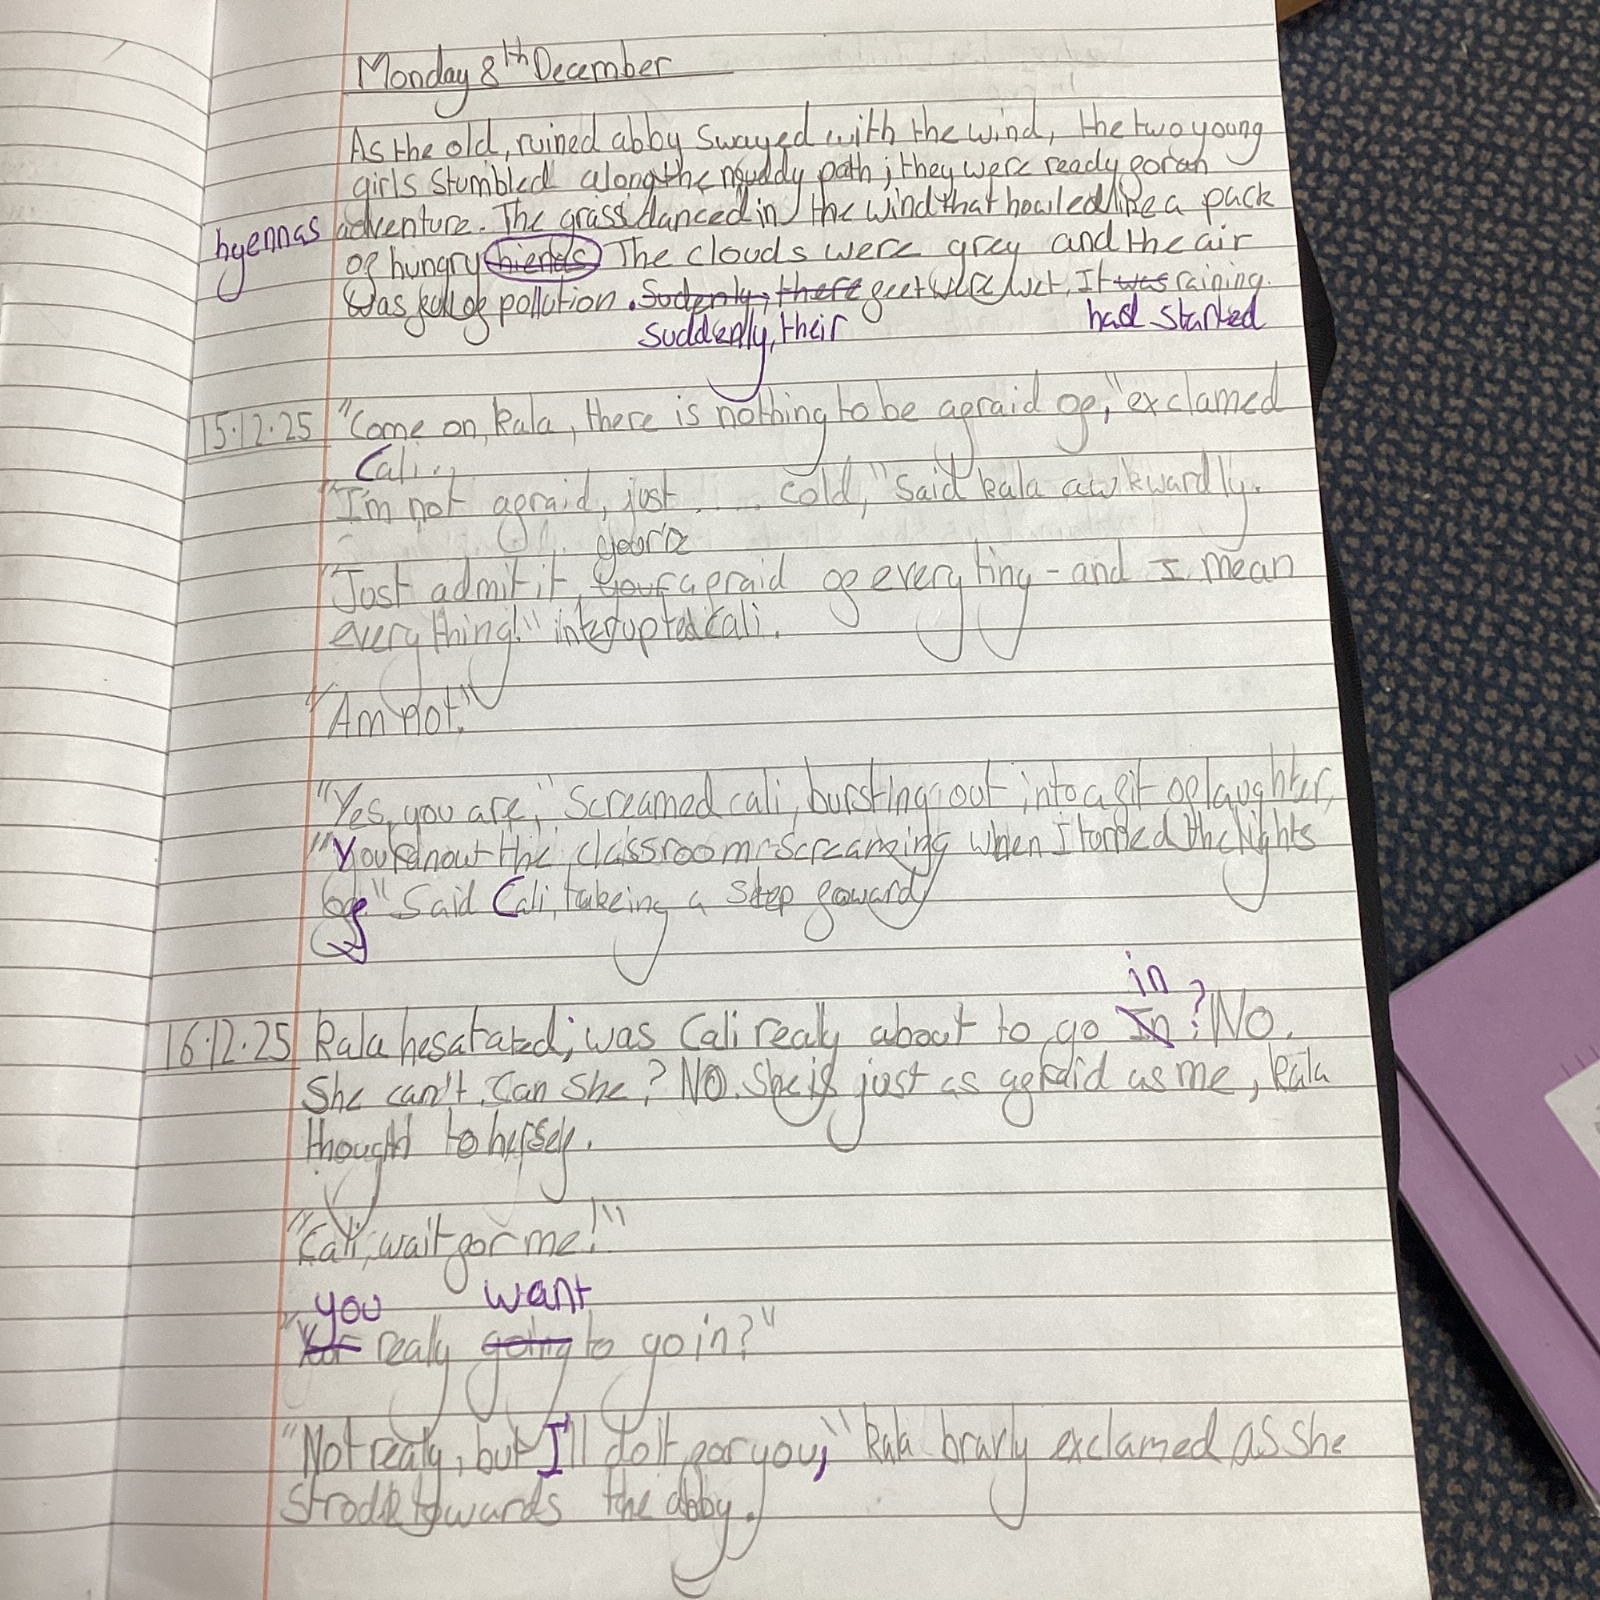 Monday 8th December
As the old, ruined abby swayed with the wind, the two young
girls stumbled along the muddy path; they were ready for an
hyennas adventure. The grass danced in the wind that howled like a pack
of hungry hienas The clouds were grey and the air
was full of pollution. Sudenly, there feet were wet, It was raining.
suddenly, their had started
15.12.25 "Come on, Kala, there is nothing to be afraid of," exclamed
Cali.
"I'm not afraid, just ..... cold," said kala awkwardly.
your'e
"Just admit it, your afraid of every ting - and I mean
everything!" interupted Cali.
"Am not."
"Yes, you are," screamed cali, bursting out into a fit of laughter,
"You out the classroom screaming when I turned the lights
off" said Cali, takeing a step foward
in
16.12.25 Kala hesatated; was Cali realy about to go In? No.
She can't. Can she? NO. She is just as afraid as me, kala
thought to herself.
"Cali, wait for me!"
you want
"Your realy going to go in?"
"Not realy, but I'll do it for you," kala bravly exclamed as she
strode towards the abby.